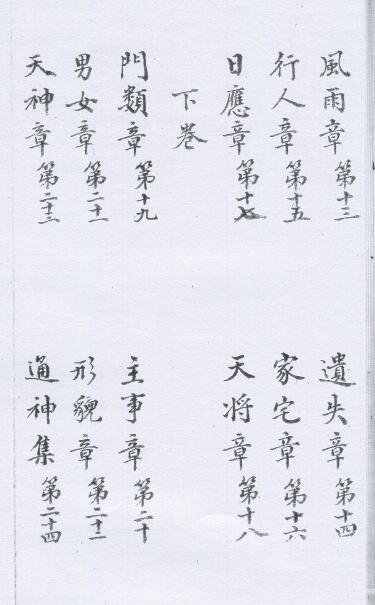 風雨章第十三
遺失章第十四
行人章第十五
家宅章第十六
日應章第十七
天将章第十八
下卷
門類章第十九
主事章第二十
男女章第二十一
形貌章第二十二
天神章第二十三
通神集第二十四